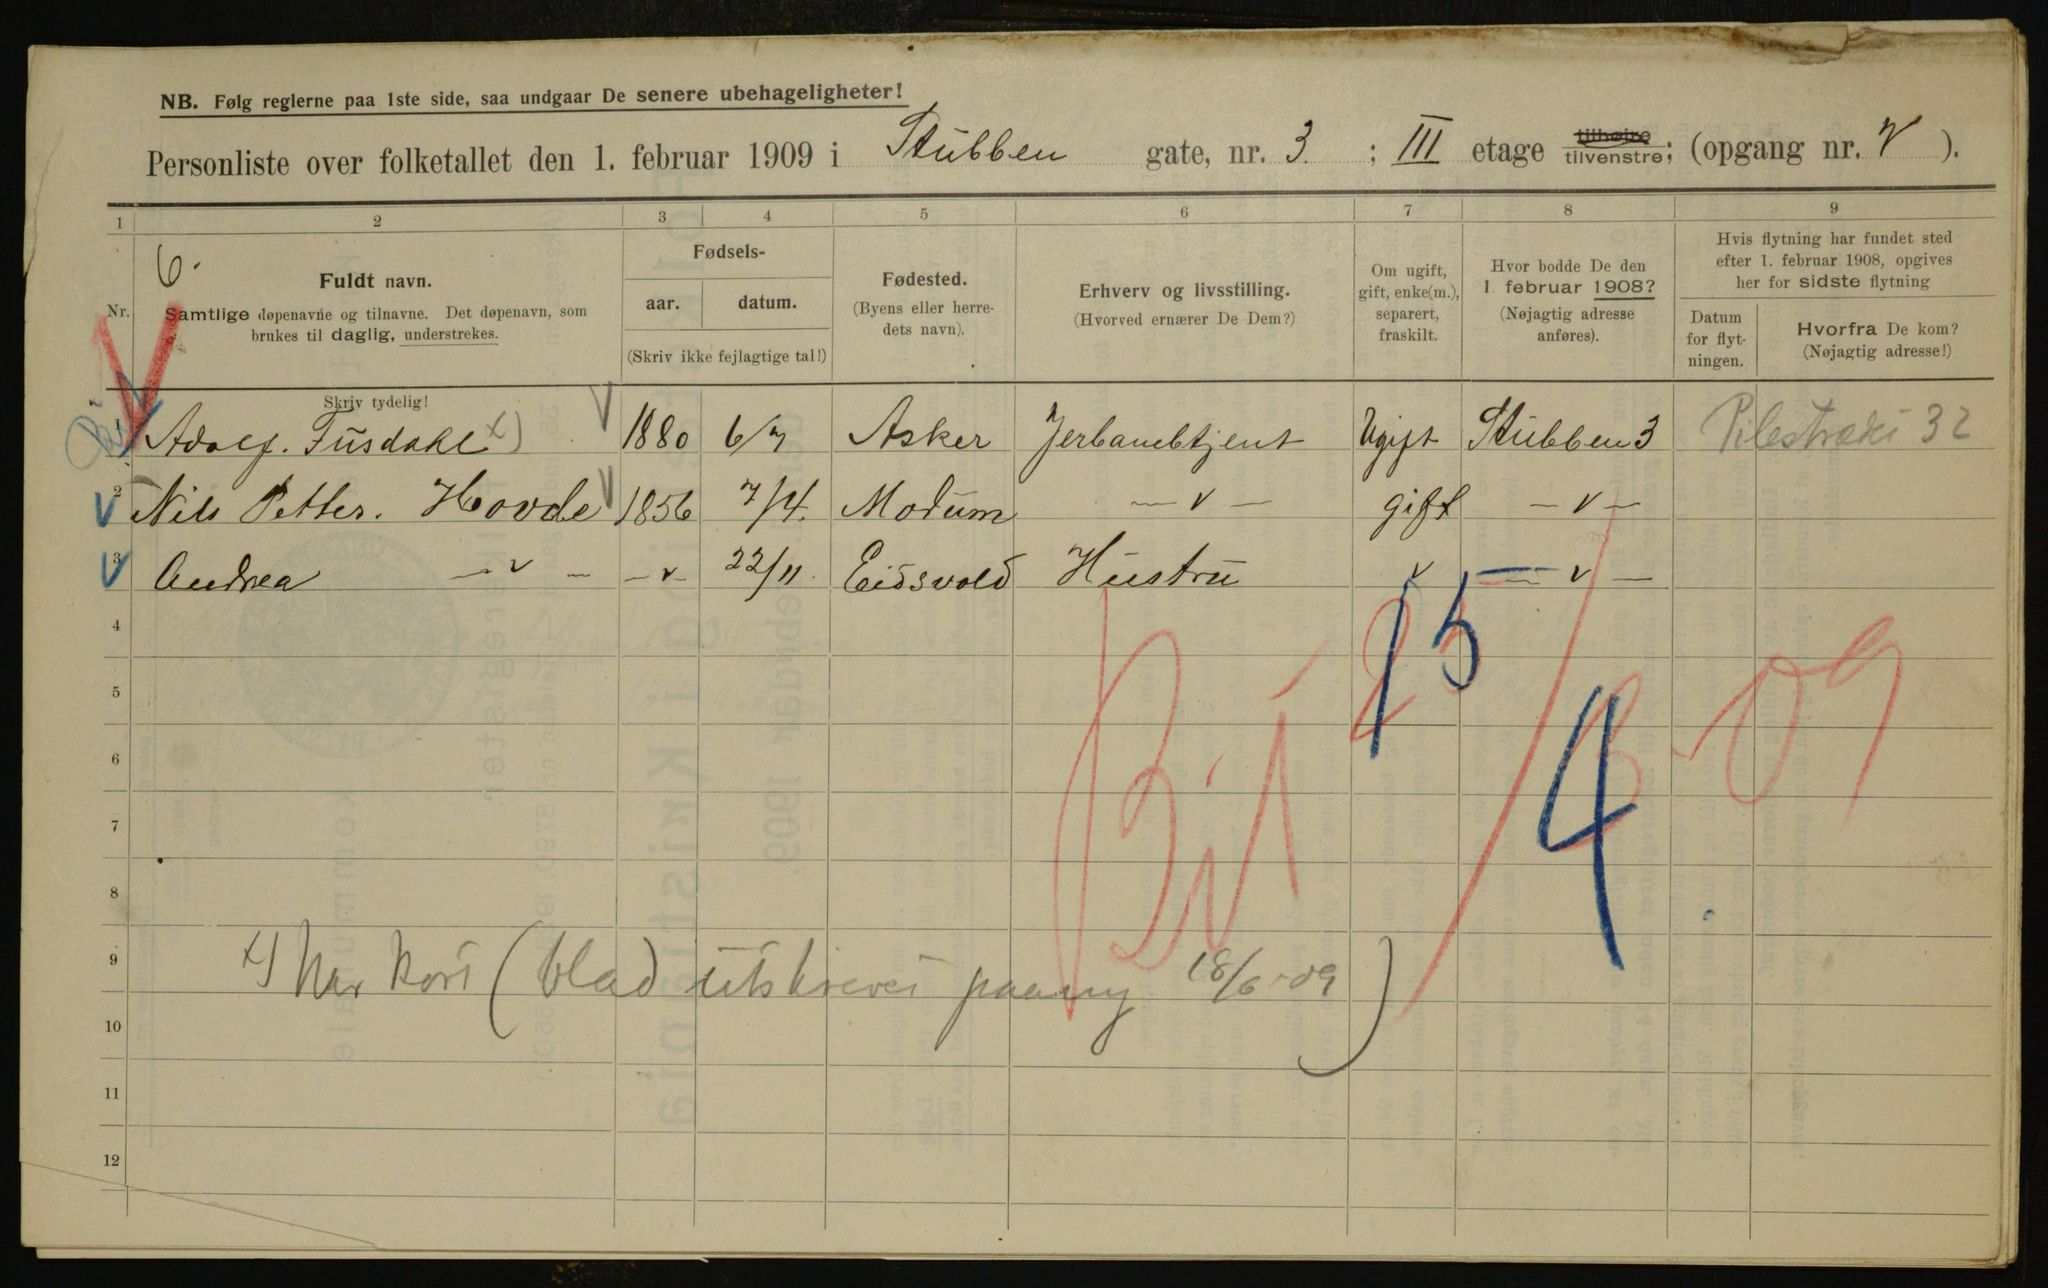 NB. Følg reglerne paa 1ste side, saa undgaar De senere ubehageligheter!
Personliste over folketallet den 1. februar 1909 i Stubben gate, nr. 3 ; III etage tilhøire tilvenstre; (opgang nr. ).
1 2 3 4 5 6 7 8 9
6.
Nr.
Fuldt navn.
Samtlige døpenavne og tilnavne. Det døpenavn, som
brukes til daglig, understrekes.
Fødsels-
aar. datum.
(Skriv ikke fejlagtige tal!)
Fødested.
(Byens eller herre-
dets navn).
Erhverv og livsstilling.
(Hvorved ernærer De Dem?)
Om ugift,
gift, enke(m.),
separert,
fraskilt.
Hvor bodde De den
1. februar 1908?
(Nøjagtig adresse
anføres).
Hvis flytning har fundet sted
efter 1. februar 1908, opgives
her for sidste flytning
Datum
for flyt-
ningen.
Hvorfra De kom?
(Nøjagtig adresse!)
Skriv tydelig!
1 Adolf. Fusdahl x) 1880 6/7 Asker Jerbanebtjent Ugift Stubben 3 Pilestræde 32
2 Nils Petter. Hovde 1856 7/4. Modum — v — gift — v —
3 Andrea — v — — v — 22/11. Eidsvold Hustru v — v —
4
5
6
7
8
9
10
11
12
15/4
x) har kort (blad utskrevet paany 18/6-09)